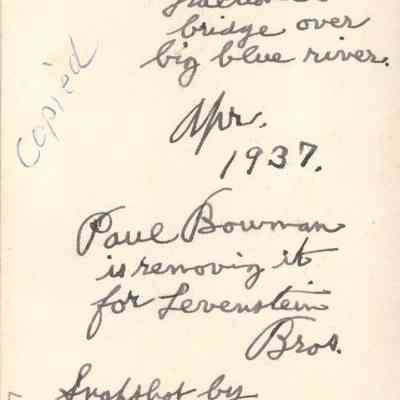 bridge over
big blue river.
Copied
Apr.
1937.
Paul Bowman
is removig it
for Levenstein
Bros.
Snapshot by